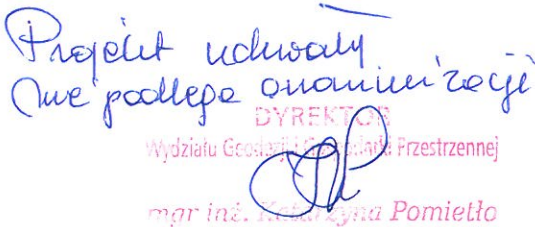 Projekt uchwały
nie podlega anonimizacji
DYREKTOR
Wydziału Geodezji i Gospodarki Przestrzennej
mgr inż. Katarzyna Pomietło